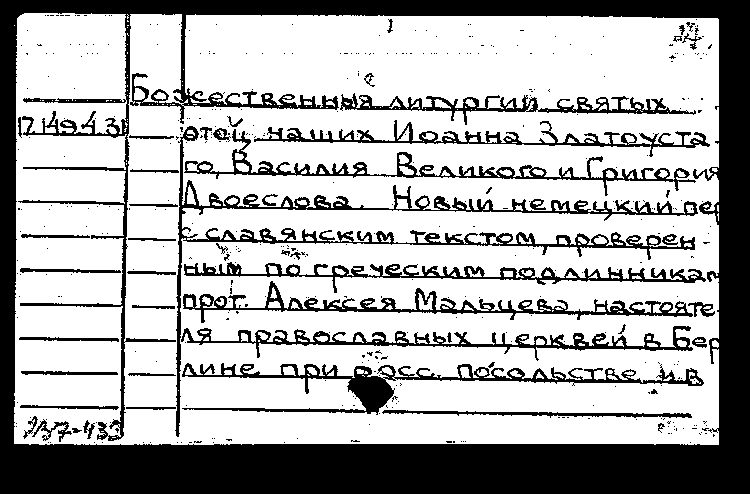 Божественныя литургии святых
17.149.4.31 отец наших Иоанна Златоуста-
го, Василия Великого и Григория
Двоеслова. Новый немецкий пер
с славянским текстом, проверен-
ным по греческим подлинникам
прот. Алексея Мальцева, настояте-
ля православных церквей в Бер
лине при росс. посольстве и в
237-433